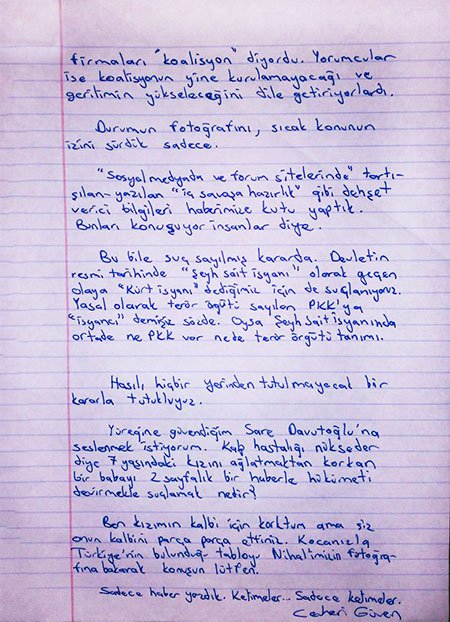 firmaları "koalisyon" diyordu. Yorumcular
ise koalisyonun yine kurulamayacağı ve
gerilimin yükseleceğini dile getiriyorlardı.
Durumun fotoğrafını, sıcak konunun
izini sürdük sadece.
"Sosyal medyada ve forum sitelerinde" tartı-
şılan-yazılan "iç savaşa hazırlık" gibi dehşet
verici bilgileri haberimize kutu yaptık.
Bunları konuşuyor insanlar diye.
Bu bile suç sayılmış kararda. Devletin
resmi tarihinde "Şeyh Sait isyanı" olarak geçen
olaya "Kürt isyanı" dediğimiz için de suçlanıyoruz.
Yasal olarak terör örgütü sayılan PKK'ya
"isyancı" demişiz sözde. Oysa Şeyh Sait isyanında
ortada ne PKK var ne de terör örgütü tanımı.
Hasılı hiçbir yerinden tutulmayacak bir
kararla tutukluyuz.
Yüreğine güvendiğim Sare Davutoğlu'na
seslenmek istiyorum. Kalp hastalığı nükseder
diye 7 yaşındaki kızını ağlatmaktan korkan
bir babayı 2 sayfalık bir haberle hükümeti
devirmekle suçlamak nedir?
Ben kızımın kalbi için korktum ama siz
onun kalbini parça parça ettiniz. Kocanızla
Türkiye'nin bulunduğu tabloyu Nihal'imizin fotoğra-
fına bakarak konuşun lütfen.
Sadece haber yazdık. Kelimeler... Sadece kelimeler.
Cevheri Güven